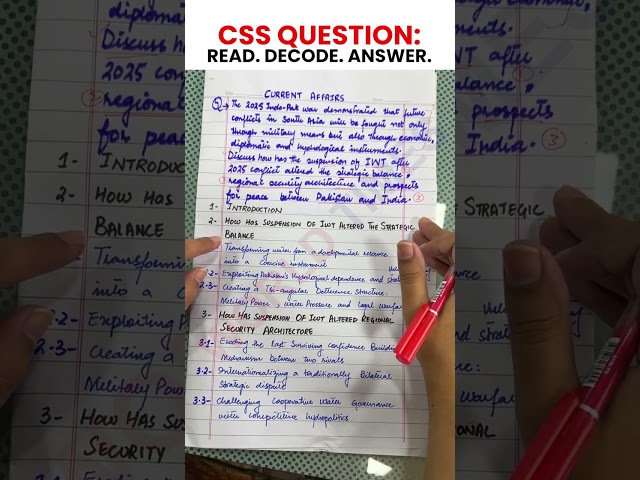 CSS QUESTION:
READ. DECODE. ANSWER.
CURRENT AFFAIRS
Q→ The 2025 Indo-Pak war demonstrated that future
conflicts in South Asia will be fought not only
through military means but also through economic,
diplomatic and hydrological instruments.
Discuss how has the suspension of IWT after
2025 conflict altered the strategic balance,
regional security architecture and prospects
for peace between Pakistan and India.
1- INTRODUCTION
2- HOW HAS SUSPENSION OF IWT ALTERED THE STRATEGIC
BALANCE
Transforming water from a developmental resource
into a coercive instrument
2.2- Exploiting Pakistan's Hydrological dependence and
2.3- Creating a Tri-angular Deterrence Structure:
Military Power, Water Pressure and Legal Warfare
3- HOW HAS SUSPENSION OF IWT ALTERED REGIONAL
SECURITY ARCHITECTURE
3.1- Eroding the last Surviving Confidence Building
Mechanism between two rivals
3.2- Internationalizing a traditionally Bilateral
Strategic dispute
3.3- Challenging Cooperative Water Governance
with competitive hydropolitics